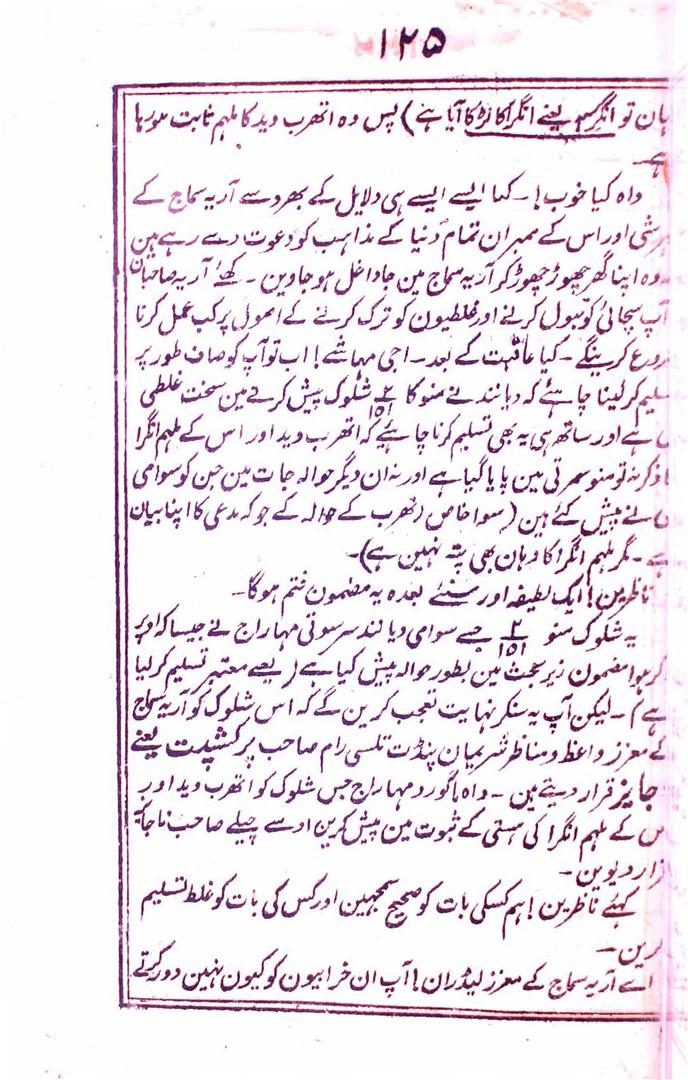 ۱۲۵
ہان تو انگرسہ یعنے انگرا کا لڑکا آیا ہے) پس وہ اتھرب وید کا ملہم ثابت ہو رہا
ہے۔
واہ کیا خوب!۔ کیا ایسے ایسے ہی دلایل کے بھروسے آریہ سماج کے
رشی اور اس کے ممبران تمام دنیا کے مذاہب کو دعوت دے رہے ہین
وہ اپنا گھر چھوڑ چھوڑ کر آریہ سماج مین جا داخل ہو جاوین۔ کہئے آریہ صاحبان
آپ سچائی کو قبول کرنے اور غلطیون کو ترک کرنے کے اصول پر کب عمل کرنا
شروع کرینگے۔ کیا عاقبت کے بعد۔ اجی مہاشے! اب تو آپ کو صاف طور پر
تسلیم کر لینا چاہئے کہ دیانند نے منو کا ۲/۱۵۱ شلوک پیش کرنے مین سخت غلطی
ہے اور ساتھ ہی یہ بھی تسلیم کرنا چاہئے کہ اتھرب وید اور اس کے ملہم انگرا
ذکر نہ تو منو سمرتی مین پایا گیا ہے اور نہ ان دیگر حوالہ جات مین جن کو سوامی
نے پیش کئے ہین (سوا خاص اتھرب کے حوالہ کے جو کہ مدعی کا اپنا بیان
ہے۔ مگر ملہم انگرا کا وہان بھی پتہ نہین ہے)۔
ناظرین! ایک لطیفہ اور سنئے بعدہ یہ مضمون ختم ہوگا۔
یہ شلوک منو ۲/۱۵۱ جسے سوامی دیانند سرسوتی مہاراج نے جیسا کہ اوپر
ذکر ہوا مضمون زیر بحث مین بطور حوالہ پیش کیا ہے (یعنے معتبر تسلیم کر لیا
ہے)۔ لیکن آپ یہ سنکر نہایت تعجب کرین گے کہ اس شلوک کو آریہ سماج
کے معزز واعظ و مناظر شریمان پنڈت تلسی رام صاحب پرکشپت یعنے
جایز قرار دیتے ہین۔ واہ گورو مہاراج جس شلوک کو اتھرب وید اور
اس کے ملہم انگرا کی ہستی کے ثبوت مین پیش کرین اوسے چیلے صاحب ناجایز
قرار دیوین۔
کہئے ناظرین! ہم کسکی بات کو صحیح سمجہین اور کس کی بات کو غلط تسلیم
کرین۔
اے آریہ سماج کے معزز لیڈران! آپ ان خرابیون کو کیون نہین دور کرتے